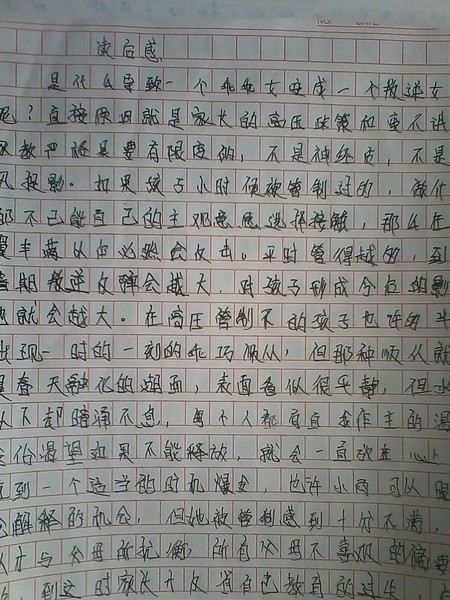 读后感
是什么导致一个乖乖女变成一个叛逆女
呢?直接原因就是家长的高压政策和变不讲
教 将是要有限度的,不是神经质,不是
风捉影。如果孩子小时便被管制过的,做什
都不已能自己的主观意愿选择接触,那么在
丰满以后必然会反击。平时管得越的,到
春期叛逆反弹会越大,对孩子形成今后的影
也就会越大。在高压管制下的孩子也许的
出现一时的一刻的乖巧顺从,但那种顺从就
是春天融化的湖面,表面看似很平静,但水
以下却暗涌不息,每个人都有自我作主的渴
这份渴望如果不能释放,就会一直放在心上
直到一个适当的时机爆发,也许小雨可以跟
解释的机会,但她被管制感到十分不满,
才与父母所抗衡,所有父母不喜欢的偏要
,到这时家长才反省自己教育的过失,